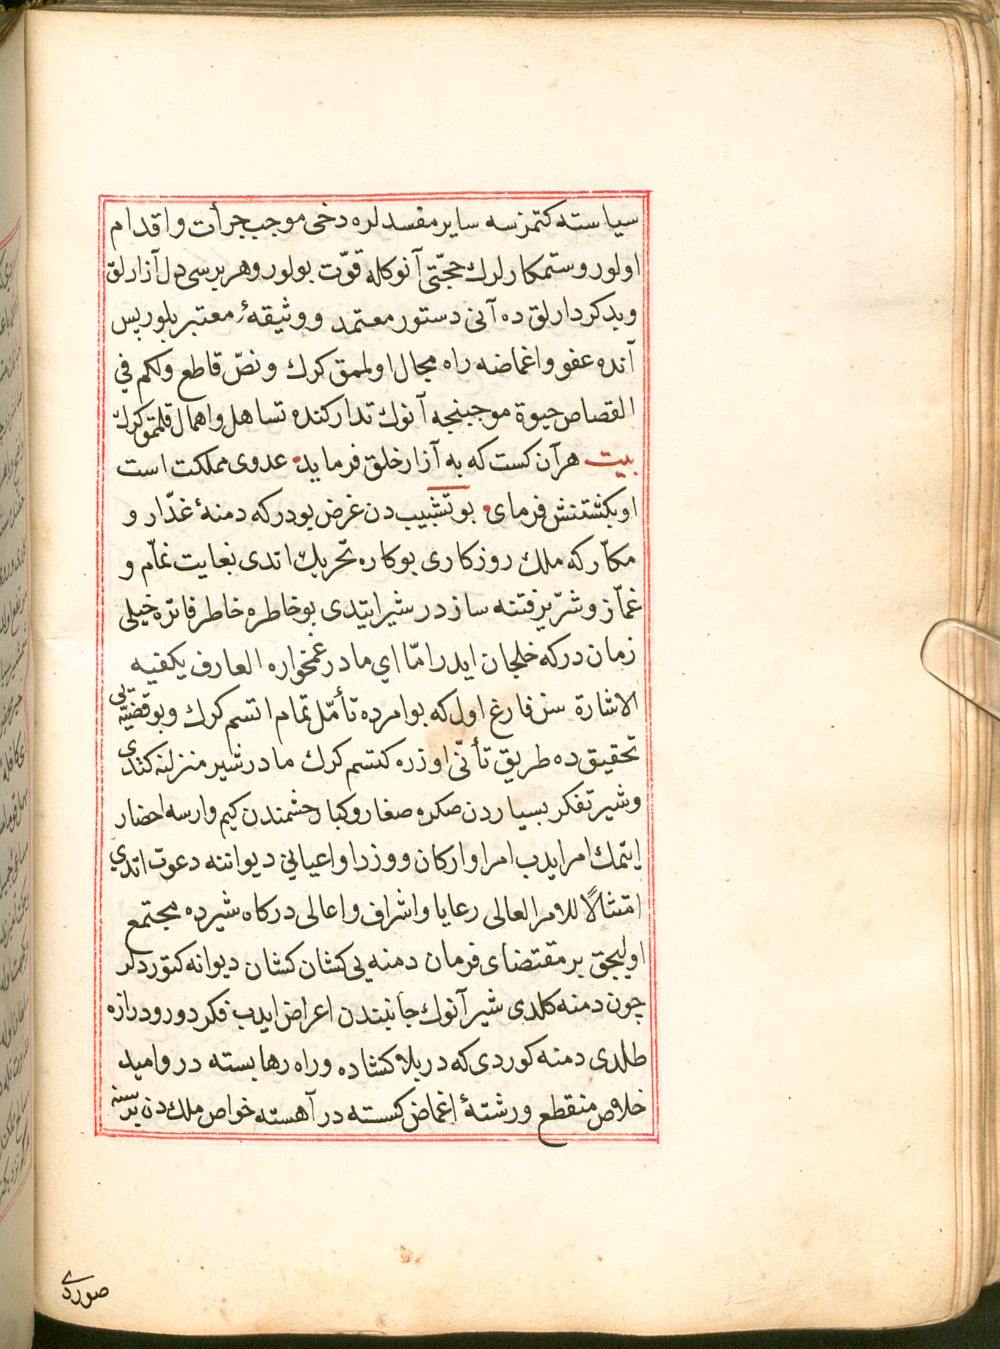 سیاسته کتمزسه سایر مفسدلره دخی موجب جرأت و اقدام
اولور و ستمکارلرك حجّتی آنوکله قوّت بولور و هر بریسی دل آزارلق
و بدکردارلق ده آنی دستور معتمد و وثیقهٔ معتبر بلور پس
آنده عفو و اغماضه راه مجال اولمق کرك و نصّ قاطع ولکم فی
القصاص حیوة موجبنجه آنوك تدارکنده تساهل و اهمال قلمق کرك
بیت هر آن کست که به آزار خلق فرماید عدوی مملکت است
او بکشتنش فرمای بو تشبیب دن غرض بودر که دمنهٔ غدّار و
مکّار که ملك روزکاری بو کاره تحریك اتدی بغایت نمّام و
غمّاز و شرّیر فتنه سازدر شیر ایتدی بو خاطره خاطر فاتره خیلی
زمان در که خلجان ایدر امّا ای مادر غمخواره العارف یکفیه
الاشارة سن فارغ اول که بو امرده تأمّل تمام اتسم کرك و بو قضیّه یی
تحقیق ده طریق تأنّی اوزره کتسم کرك مادر شیر منزلنه کتدی
و شیر تفکر بسیاردن صکره صغار و کبار حشمندن کیم وارسه احضار
اتمك امر ایدب امرا و ارکان و وزرا و اعیانی دیواننه دعوت اتدی
امتثالاً للامر العالی رعایا و اشراف و اعالی درکاه شیرده مجتمع
اولیجق بر مقتضای فرمان دمنه یی کشان کشان دیوانه کتوردلر
چون دمنه کلدی شیر آنوك جانبندن اعراض ایدب فکر دور و درازه
طلدی دمنه کوردی که در بلا کشاده و راه رها بسته در و امید
خلاص منقطع و رشتهٔ اغماض کسسته در آهسته خواص ملك دن برسنه
صوردی